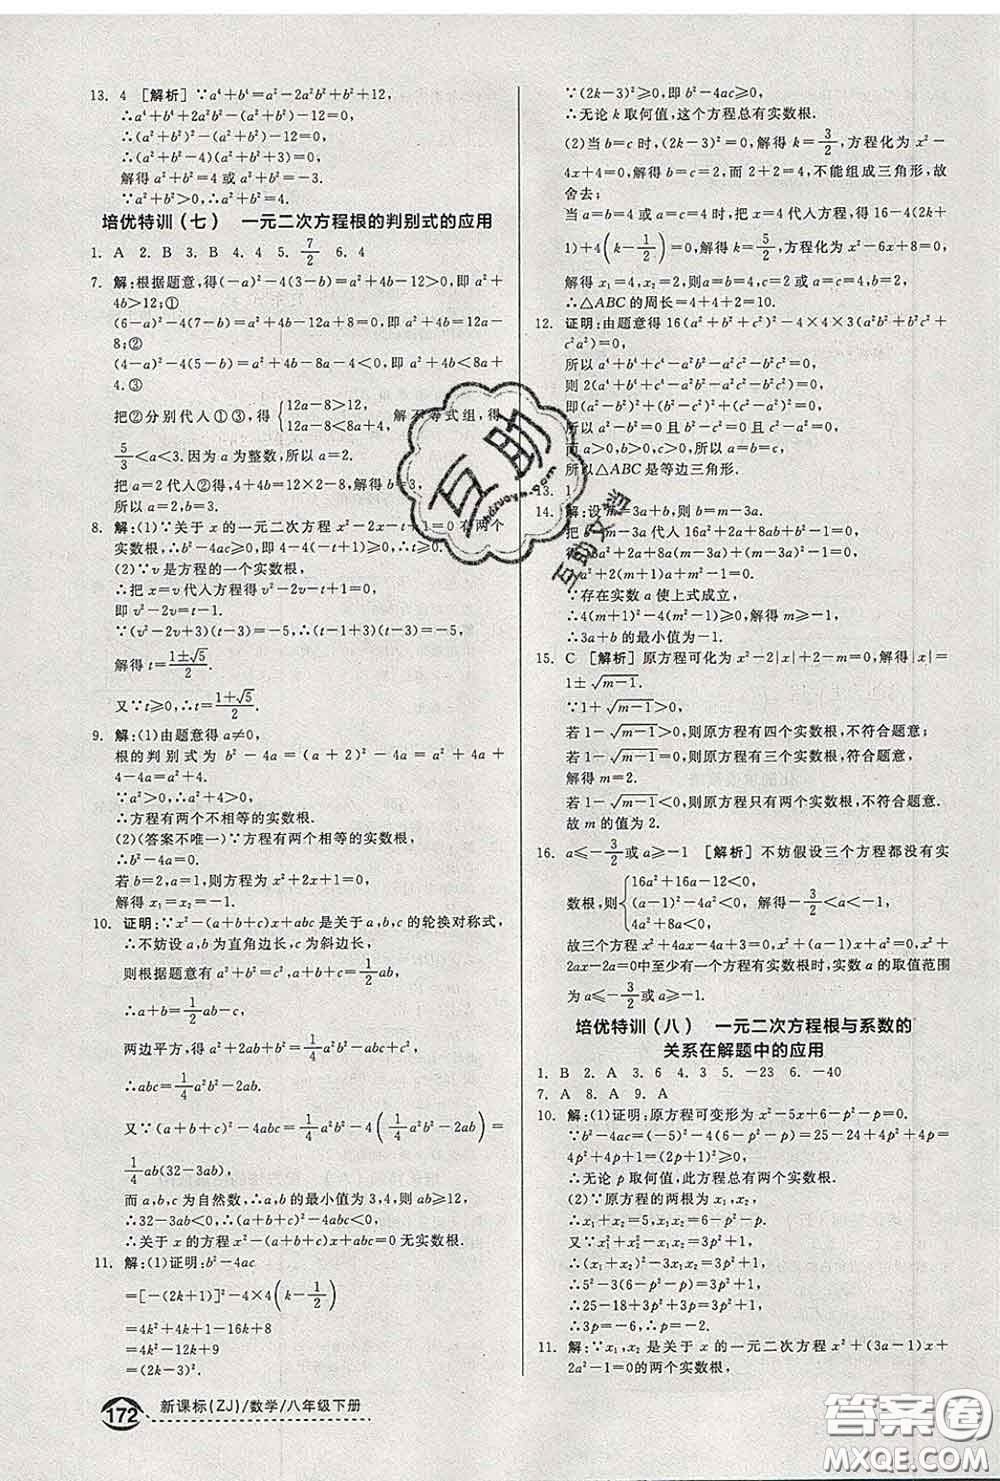 13. 4 [解析] ∵a⁴+b⁴=a²-2a²b²+b²+12,
∴a⁴+b⁴+2a²b²-(a²+b²)-12=0,
∴(a²+b²)²-(a²+b²)-12=0,
∴(a²+b²-4)(a²+b²+3)=0,
解得 a²+b²=4 或 a²+b²=-3.
∵a²+b²>0,∴a²+b²=4.
培优特训(七) 一元二次方程根的判别式的应用
1. A 2. B 3. B 4. 4 5. 7/2 6. 4
7. 解:根据题意,得(-a)²-4(3-b)=a²+4b-12>0,即 a²+
4b>12;①
(6-a)²-4(7-b)=a²+4b-12a+8=0,即 a²+4b=12a-
8;②
(4-a)²-4(5-b)=a²+4b-8a-4<0,即 a²+4b<8a+
4.③
把②分别代入①③,得{12a-8>12, 12a-8<8a+4, 解不等式组,得
5/3<a<3.因为 a 为整数,所以 a=2.
把 a=2 代入②得,4+4b=24-8,解得 b=3,
所以 a=2,b=3.
8. 解:(1)∵关于 x 的一元二次方程 x²-2x-t+1=0 有两个
实数根,∴(-2)²-4(-t+1)≥0,解得 t≥0.
(2)∵v 是方程的一个实数根,
∴把 x=v 代入方程得 v²-2v-t+1=0,
即 v²-2v=t-1.
∵(v²-2v+3)(t-3)=-5,∴(t-1+3)(t-3)=-5,
解得 t=(1±√5)/2.
又∵t≥0,∴t=(1+√5)/2.
9. 解:(1)由题意得 a≠0,
根的判别式为 b²-4a=(a+2)²-4a=a²+4a+
4-4a=a²+4.
∵a²>0,∴a²+4>0,
∴方程有两个不相等的实数根.
(2)(答案不唯一)∵方程有两个相等的实数根,
∴b²-4a=0,
若 b=2,a=1,则方程为 x²+2x+1=0,
解得 x₁=x₂=-1.
10. 证明:∵x²-(a+b+c)x+abc 是关于 a,b,c 的轮换对称式,
∴不妨设 a,b 为直角边长,c 为斜边长,
则根据题意有 a²+b²=c²,a+b+c=1/2ab,
∴a+b=1/2ab-c,
两边平方,得 a²+b²+2ab=1/4a²b²+c²-abc,
∴abc=1/4a²b²-2ab.
又∵(a+b+c)²-4abc=1/4a²b²-4(1/4a²b²-2ab)=
1/4ab(32-3ab),
而 a,b,c 为自然数,∴a,b 的最小值为 3,4,∴ab≥12,
∴32-3ab<0,∴(a+b+c)²-4abc<0,
∴关于 x 的方程 x²-(a+b+c)x+abc=0 无实数根.
11. 解:(1)证明:b²-4ac
=[-(2k+1)]²-4×4(k-1/2)
=4k²+4k+1-16k+8
=4k²-12k+9
=(2k-3)².
172 新课标(ZJ)/数学/八年级下册
∵(2k-3)²≥0,即 b²-4ac≥0,
∴无论 k 取何值,这个方程总有实数根.
(2)当 b=c 时,(2k-3)²=0,解得 k=3/2,方程化为 x²-
4x+4=0,解得 b=c=2,而 b+c=a,不能组成三角形,故
舍去;
当 a=b=4 或 a=c=4 时,把 x=4 代入方程,得 16-4(2k
+1)+4(k-1/2)=0,解得 k=5/2,方程化为 x²-6x+8=0,
解得 x₁=4,x₂=2,则 a=b=4,c=2 或 a=c=4,b=2,
∴△ABC 的周长=4+4+2=10.
12. 证明:由题意得 16(a²+b²+c²)-4×4×3(a²b²+b²c²+
c²a²)=0,
所以 a⁴+b⁴+c⁴-a²b²-b²c²-c²a²=0,
则 2(a⁴+b⁴+c⁴-a²b²-b²c²-c²a²)=0,
即(a²-b²)²+(b²-c²)²+(c²-a²)²=0,
所以 a²-b²=0 且 b²-c²=0 且 c²-a²=0.
而 a>0,b>0,c>0,所以 a=b=c,
所以△ABC 是等边三角形.
13. 1
14. 解:设 m=3a+b,则 b=m-3a.
把 b=m-3a 代入 2a²+2a+8ab+b²=0,
得 2a²+2a+8a(m-3a)+(m-3a)²=0,
∵存在实数 a 使上式成立,
∴4(m+1)²-4(m²-1)≥0,解得 m≥-1.
∴3a+b 的最小值为-1.
15. C [解析] 原方程可化为 x²-2|x|+2-m=0,解得|x|=
1±√(m-1).
∵1+√(m-1)>0,
若 1-√(m-1)>0,则原方程有四个实数根,不符合题意;
若 1-√(m-1)=0,则原方程有三个实数根,符合题意,
解得 m=2.
若 1-√(m-1)<0,则原方程只有两个实数根,不符合题意.
故 m 的值为 2.
16. a≤-3/2或 a≥-1 [解析] 不妨假设三个方程都没有实
数根,则有{16a²+16a-12<0, (a-1)²-4a²<0, 4a²+8a<0, 解得-3/2<a<-1,
故三个方程 x²+4ax-4a+3=0,x²+(a-1)x+a²=0,x²+
2ax-2a=0中至少有一个方程有实数根时,实数 a 的取值范围
为 a≤-3/2或 a≥-1.
培优特训(八) 一元二次方程根与系数的
关系在解题中的应用
1. B 2. A 3. 6 4. 3 5. -23 6. -40
7. A 8. A 9. A
10. 解:(1)证明:原方程可变形为 x²-5x+6-p²-p=0.
∵b²-4ac=(-5)²-4(6-p²-p)=25-24+4p²+
4p=4p²+4p+1=(2p+1)²≥0,
∴无论 p 取何值,此方程总有两个实数根.
(2)∵原方程的两根为 x₁,x₂,
∴x₁+x₂=5,x₁x₂=6-p²-p.
又∵x₁²+x₂²-x₁x₂=3p²+1,
∴(x₁+x₂)²-3x₁x₂=3p²+1,
∴5²-3(6-p²-p)=3p²+1,
∴25-18+3p²+3p=3p²+1,
∴3p=-6,∴p=-2.
11. 解:∵x₁,x₂ 是关于 x 的一元二次方程 x²+(3a-1)x+
的两个实数根,
互助
huzuowenku.com
互助文档
答案圈
MXQE.COM